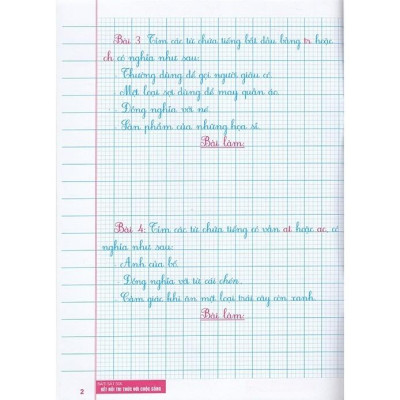 Bài 3: Tìm các từ chứa tiếng bắt đầu bằng tr hoặc
ch có nghĩa như sau:
- Thường dùng để gọi người giàu có.
- Một loại sợi dùng để may quần áo.
- Đồng nghĩa với né.
- Sản phẩm của những họa sĩ.
Bài làm:
Bài 4: Tìm các từ chứa tiếng có vần at hoặc ac, có
nghĩa như sau:
- Anh của bố.
- Đồng nghĩa với từ cái chén.
- Cảm giác khi ăn một loại trái cây còn xanh.
Bài làm:
2
KẾT NỐI TRI THỨC VỚI CUỘC SỐNG